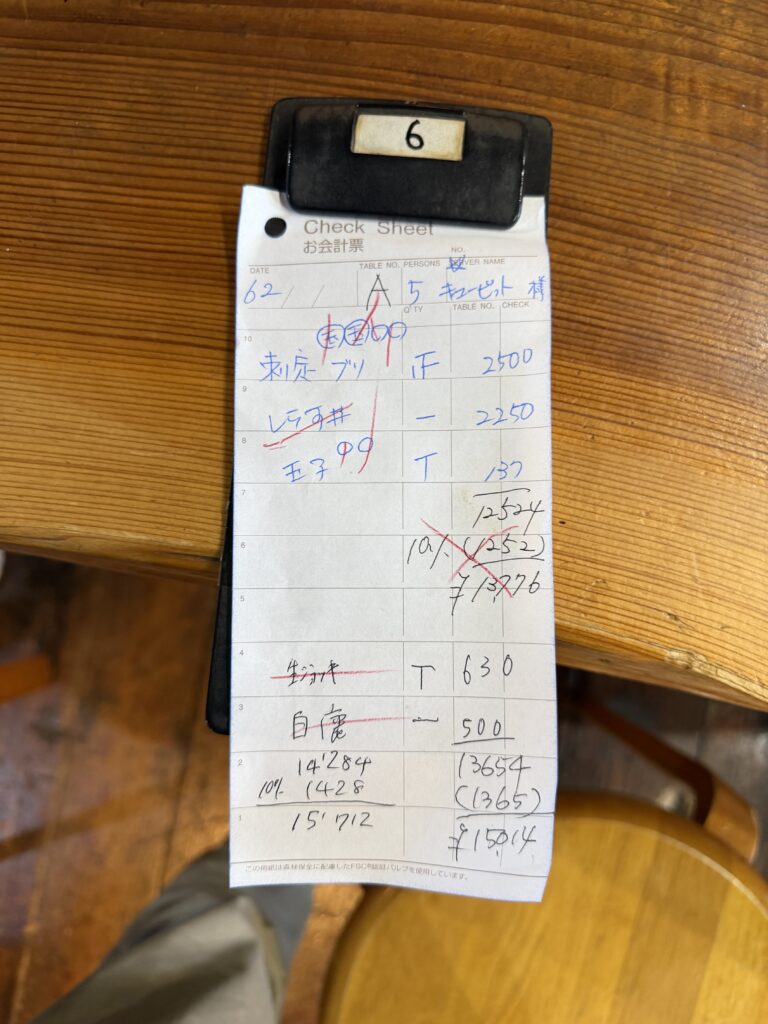 6
Check Sheet
お会計票
NO.
DATE TABLE NO. PERSONS SERVER NAME
62 / / A 5 キューピット 様
Q'TY TABLE NO. CHECK
10
刺定 ブリ 正 2500
9
しらす丼 一 2250
8
玉子 T 137
7
12524
6
10% (1252)
¥13,776
5
4
生ジョッキ T 630
3
一 500
2
14'284 13654
10% 1428 (1365)
1
15'712 ¥15,014
この用紙は森林保全に配慮したFSC®認証パルプを使用しています。